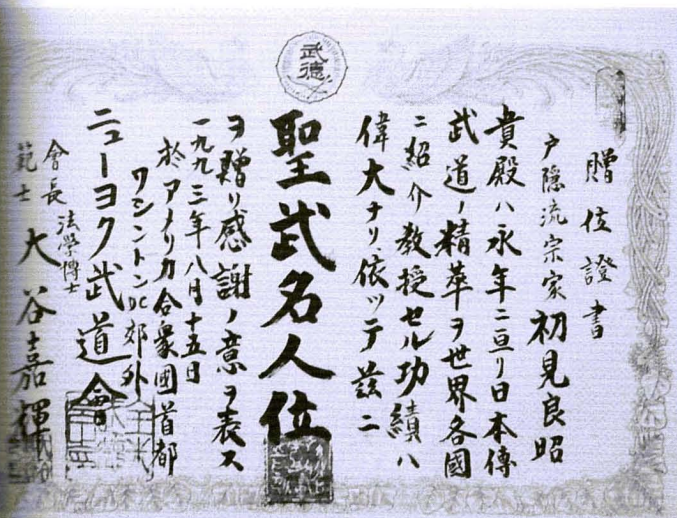 武德
贈位證書
戸隠流宗家 初見良昭
貴殿ハ永年ニ亘リ日本傳
武道ノ精華ヲ世界各國
ニ紹介教授セル功績ハ
偉大ナリ依ッテ茲ニ
聖武名人位
ヲ贈リ感謝ノ意ヲ表ス
一九九三年八月十五日
於アメリカ合衆國首都
ワシントンDC郊外
ニューヨク武道會
會長 法學博士
範士 大谷嘉輝